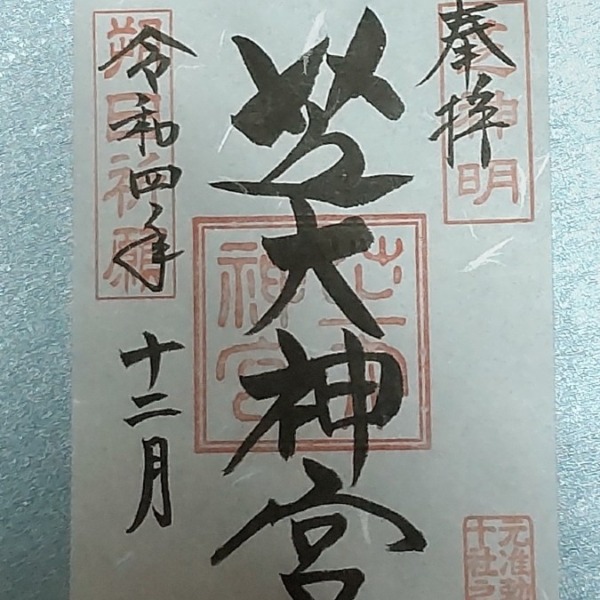 奉拝
芝神明
芝大神宮
芝大神宮
令和四年
十二月
朔日祈願
元准勅
十社之